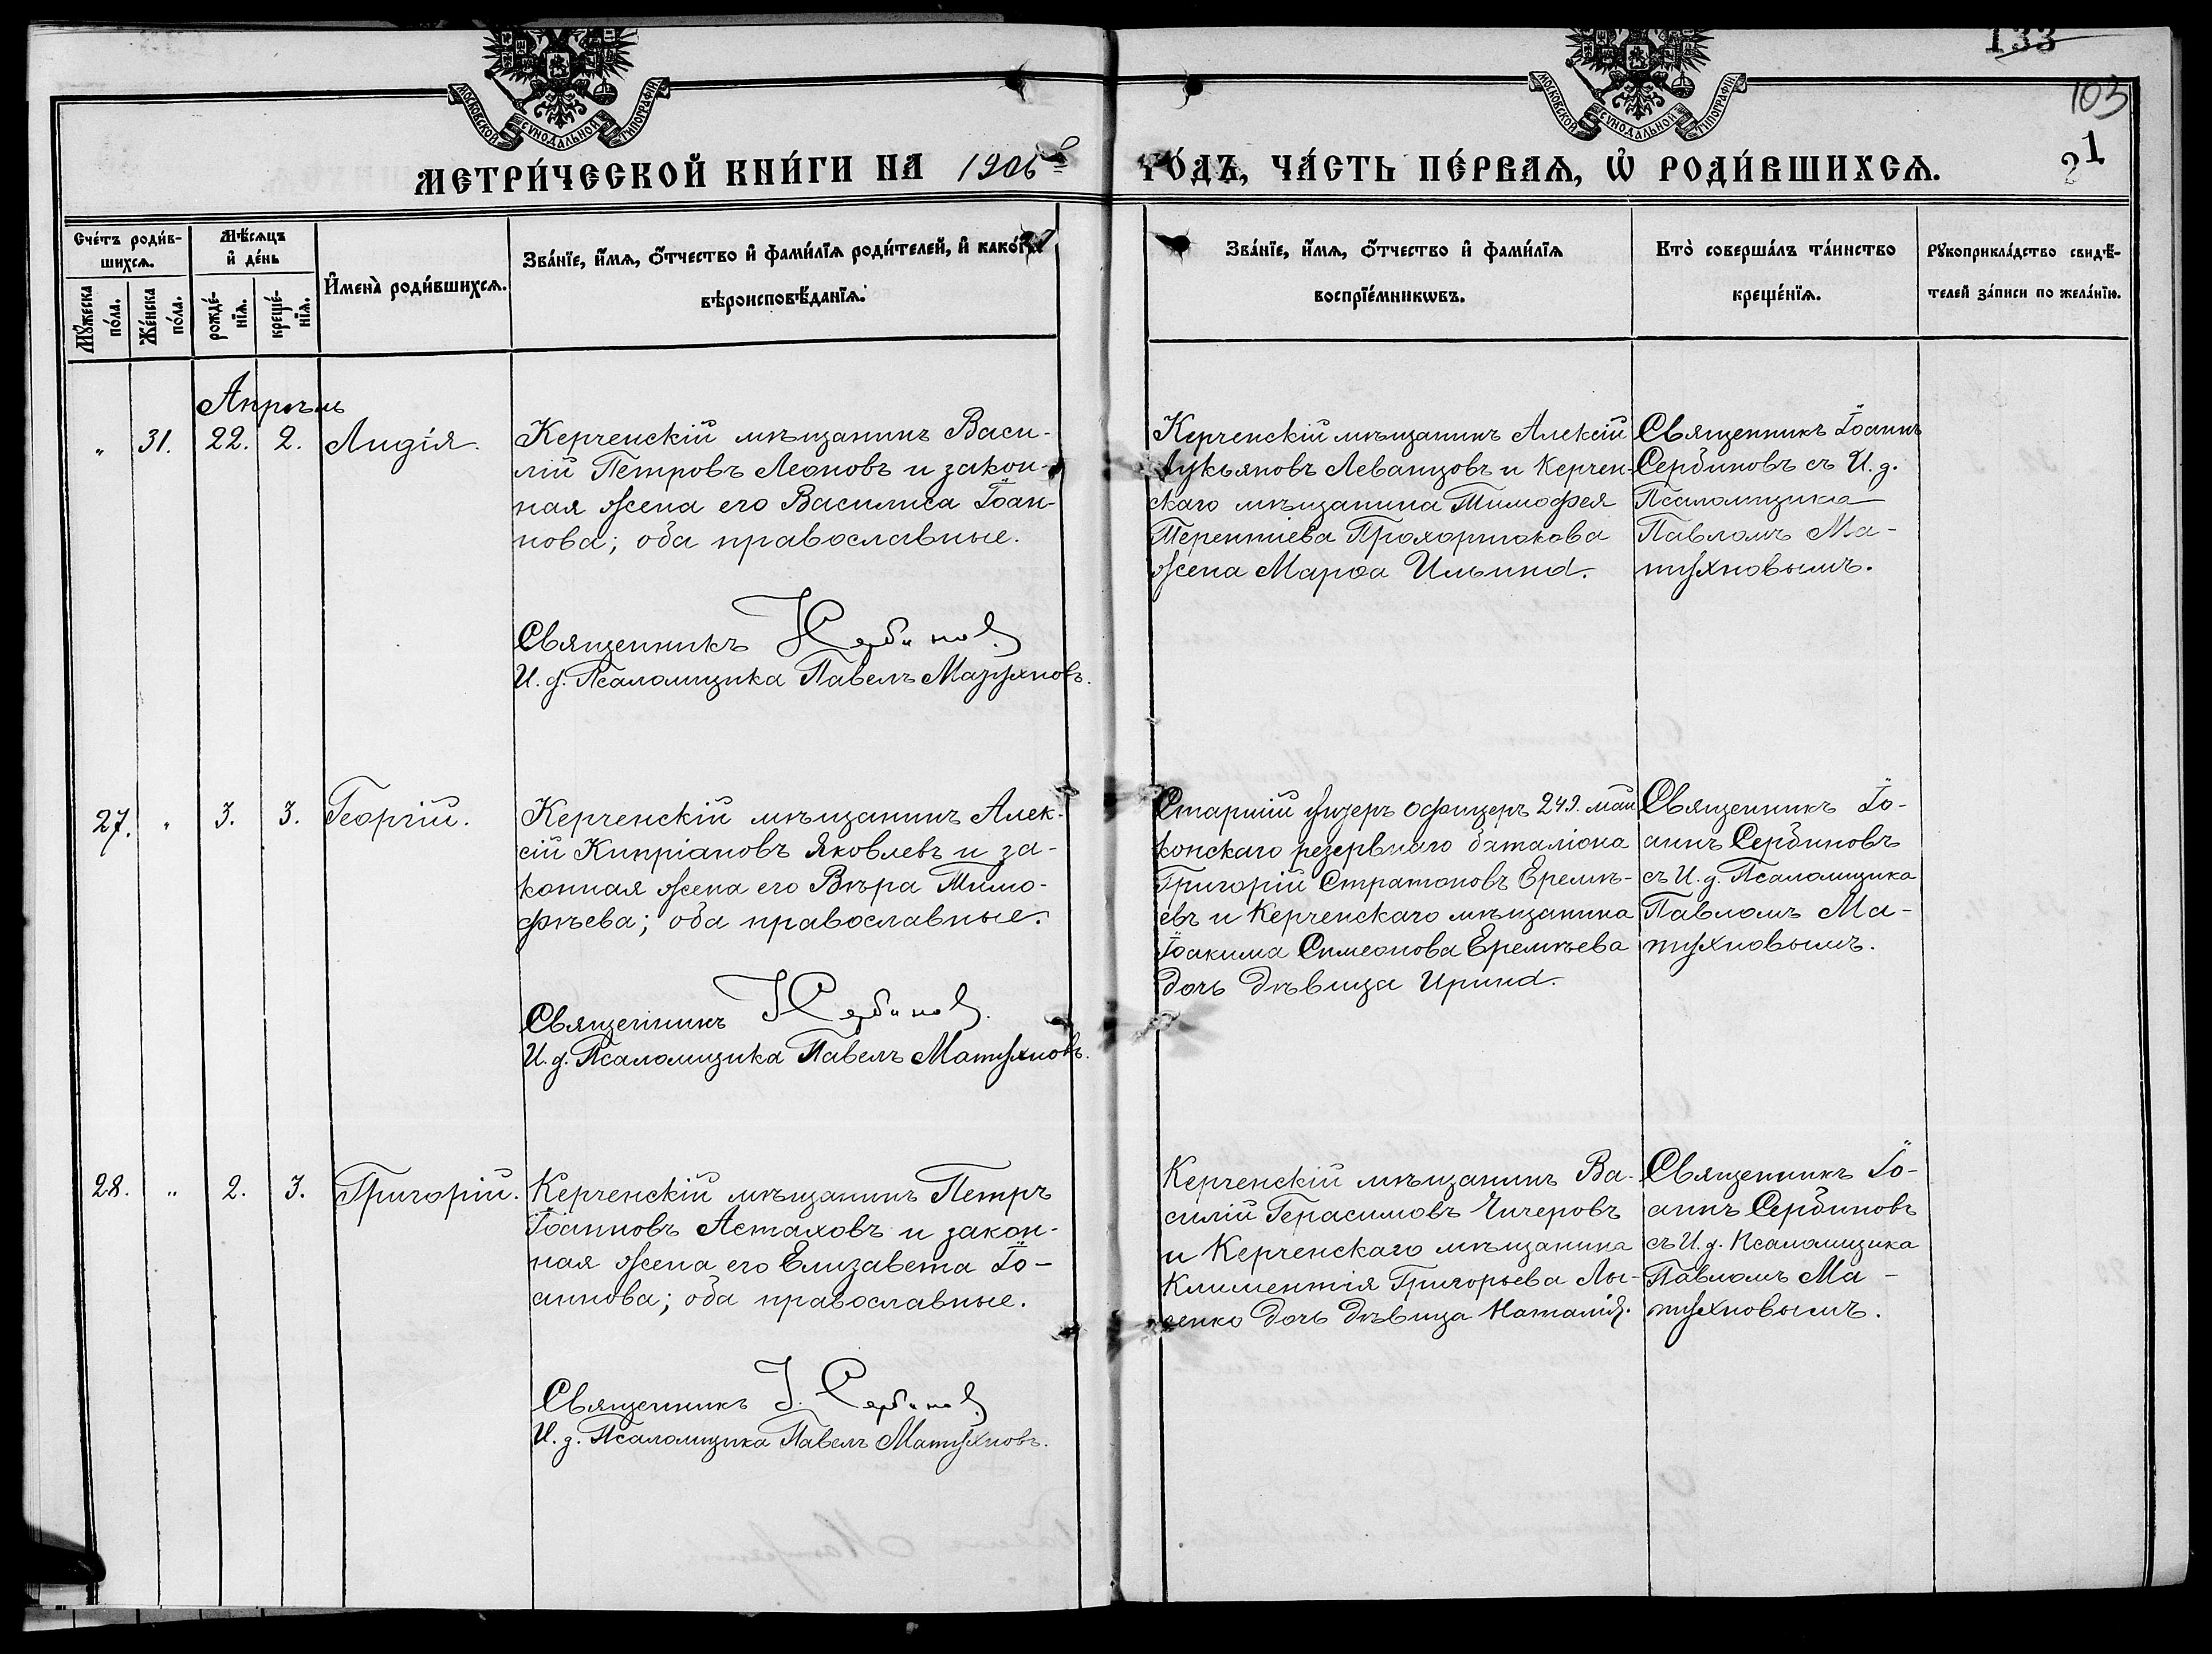 133
103
21
МОСКОВСКОЙ СѴНОДАЛЬНОЙ ТИПОГРАФІИ
МОСКОВСКОЙ СѴНОДАЛЬНОЙ ТИПОГРАФІИ
МЕТРИ́ЧЕСКОЙ КНИ́ГИ НА 1906й ГО́ДЪ, ЧА́СТЬ ПЕ́РВАѦ, Ѡ҆ РОДИ́ВШИХСѦ.
Сче́тъ роди́в-
шихсѧ.
Мꙋ́жеска по́ла.
Же́нска по́ла.
Мѣ́сѧцъ
и҆ де́нь
рожде́-
нїѧ.
креще́-
нїѧ.
И҆мена̀ роди́вшихсѧ.
Зва́нїе, и҆́мѧ, ѻ҆́тчество и҆ фами́лїѧ роди́телей, и҆ како́гѡ
вѣроисповѣ́данїѧ.
Зва́нїе, и҆́мѧ, ѻ҆́тчество и҆ фами́лїѧ
воспрїе́мникѡвъ.
Кто̀ соверша́лъ та́инство
креще́нїѧ.
Рꙋкоприкла́дство свидѣ́-
телей за́писи по жела́нїю.
Апрѣль
" 31. 22. 2. Лидія.
Керченскій мѣщанинъ Васи-
лій Петровъ Леоновъ и закон-
ная жена его Василиса Іоан-
нова; оба православные.
Священникъ І Сербиновъ
И. д. Псаломщика Павелъ Матухновъ.
Керченскій мѣщанинъ Алексій
Лукьяновъ Леванцовъ и Керчен-
скаго мѣщанина Тимофея
Терентіева Прохортокова
жена Марѳа Ильина.
Священникъ Іоаннъ
Сербиновъ съ И. д.
Псаломщика
Павломъ Ма-
тухновымъ.
27. " 3. 3. Георгій.
Керченскій мѣщанинъ Алек-
сій Кипріановъ Яковлевъ и за-
конная жена его Вѣра Тимо-
фѣева; оба православные.
Священникъ І Сербиновъ.
И. д. Псаломщика Павелъ Матухновъ.
Старшій унтеръ офицеръ 249. май
копскаго резервнаго баталіона
Григорій Стратоновъ Еремѣ-
евъ и Керченскаго мѣщанина
Іоакима Симеонова Еремѣева
дочь дѣвица Ирина.
Священникъ Іо-
аннъ Сербиновъ
съ И. д. Псаломщика
Павломъ Ма-
тухновымъ.
28. " 2. 3. Григорій.
Керченскій мѣщанинъ Петръ
Іоанновъ Астаховъ и закон-
ная жена его Елизавета Іо-
аннова; оба православные.
Священникъ І. Сербиновъ
И. д. Псаломщика Павелъ Матухновъ.
Керченскій мѣщанинъ Ва-
силій Герасимовъ Чичеровъ
и Керченскаго мѣщанина
Климентія Григорьева Лы-
сенко дочь дѣвица Наталія.
Священникъ Іо-
аннъ Сербиновъ
съ И. д. Псаломщика
Павломъ Ма-
тухновымъ.